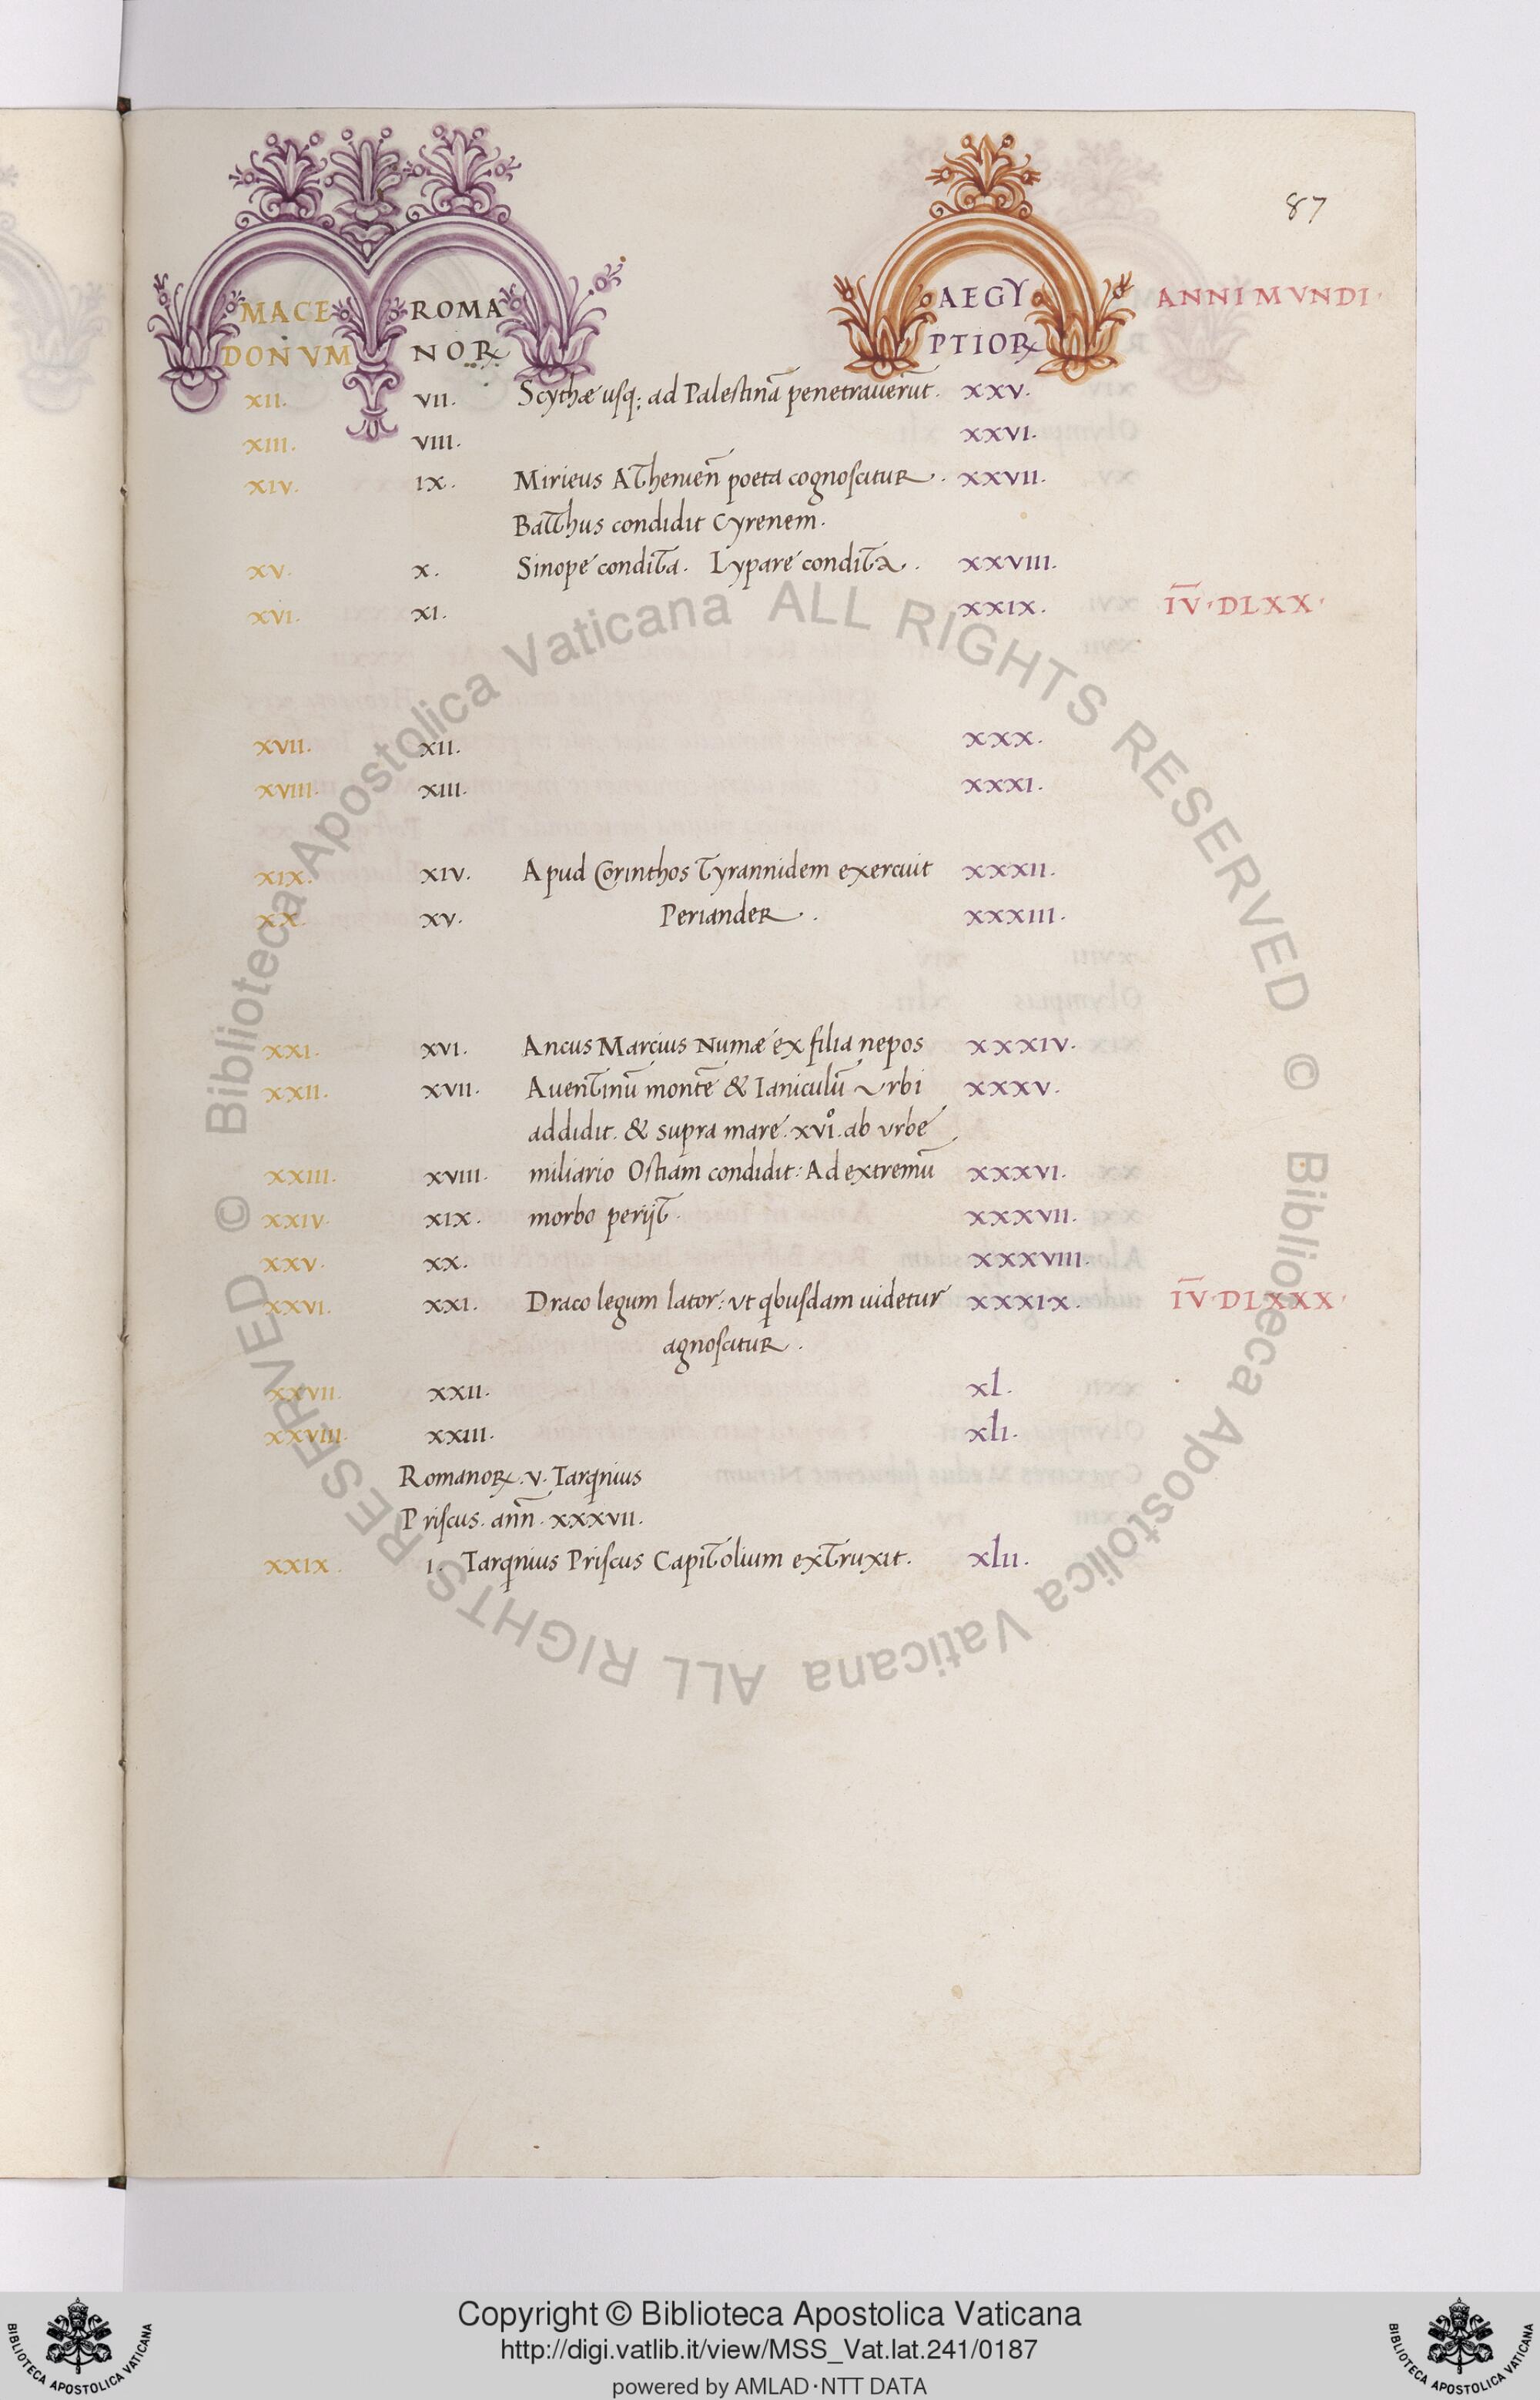 87
MACE ROMA AEGY ANNI MVNDI·
DONVM NOꝜ PTIOꝜ
XII. VII. Scythæ usq; ad Palestinā penetrauerūt. XXV.
XIII. VIII. XXVI.
XIV. IX. Mirieus Atheniēn poeta cognoscitur. XXVII.
Batthus condidit Cyrenem.
XV. X. Sinope condita. Lypare condita. XXVIII.
XVI. XI. XXIX. I̅V̅·DLXX·
XVII. XII. XXX.
XVIII. XIII. XXXI.
XIX. XIV. Apud Corinthos Tyrannidem exercuit XXXII.
XX. XV. Periander. XXXIII.
XXI. XVI. Ancus Marcius Numæ ex filia nepos XXXIV.
XXII. XVII. Auentinū montē & Ianiculū Vrbi XXXV.
addidit. & supra mare. xvi°. ab vrbe
XXIII. XVIII. miliario Ostiam condidit: Ad extremū XXXVI.
XXIV. XIX. morbo perijt. XXXVII.
XXV. XX. XXXVIII.
XXVI. XXI. Draco legum lator: vt qbusdam uidetur XXXIX. I̅V̅·DLXXX·
agnoscitur.
XXVII. XXII. xl.
XXVIII. XXIII. xli.
Romanoꝝ. v. Tarqnius
Priscus. ann̄. xxxvii.
XXIX. I. Tarqnius Priscus Capitolium extruxit. xlii.
© Biblioteca Apostolica Vaticana ALL RIGHTS RESERVED
© Biblioteca Apostolica Vaticana ALL RIGHTS RESERVED
Copyright © Biblioteca Apostolica Vaticana
http://digi.vatlib.it/view/MSS_Vat.lat.241/0187
powered by AMLAD·NTT DATA
BIBLIOTECA APOSTOLICA VATICANA
BIBLIOTECA APOSTOLICA VATICANA